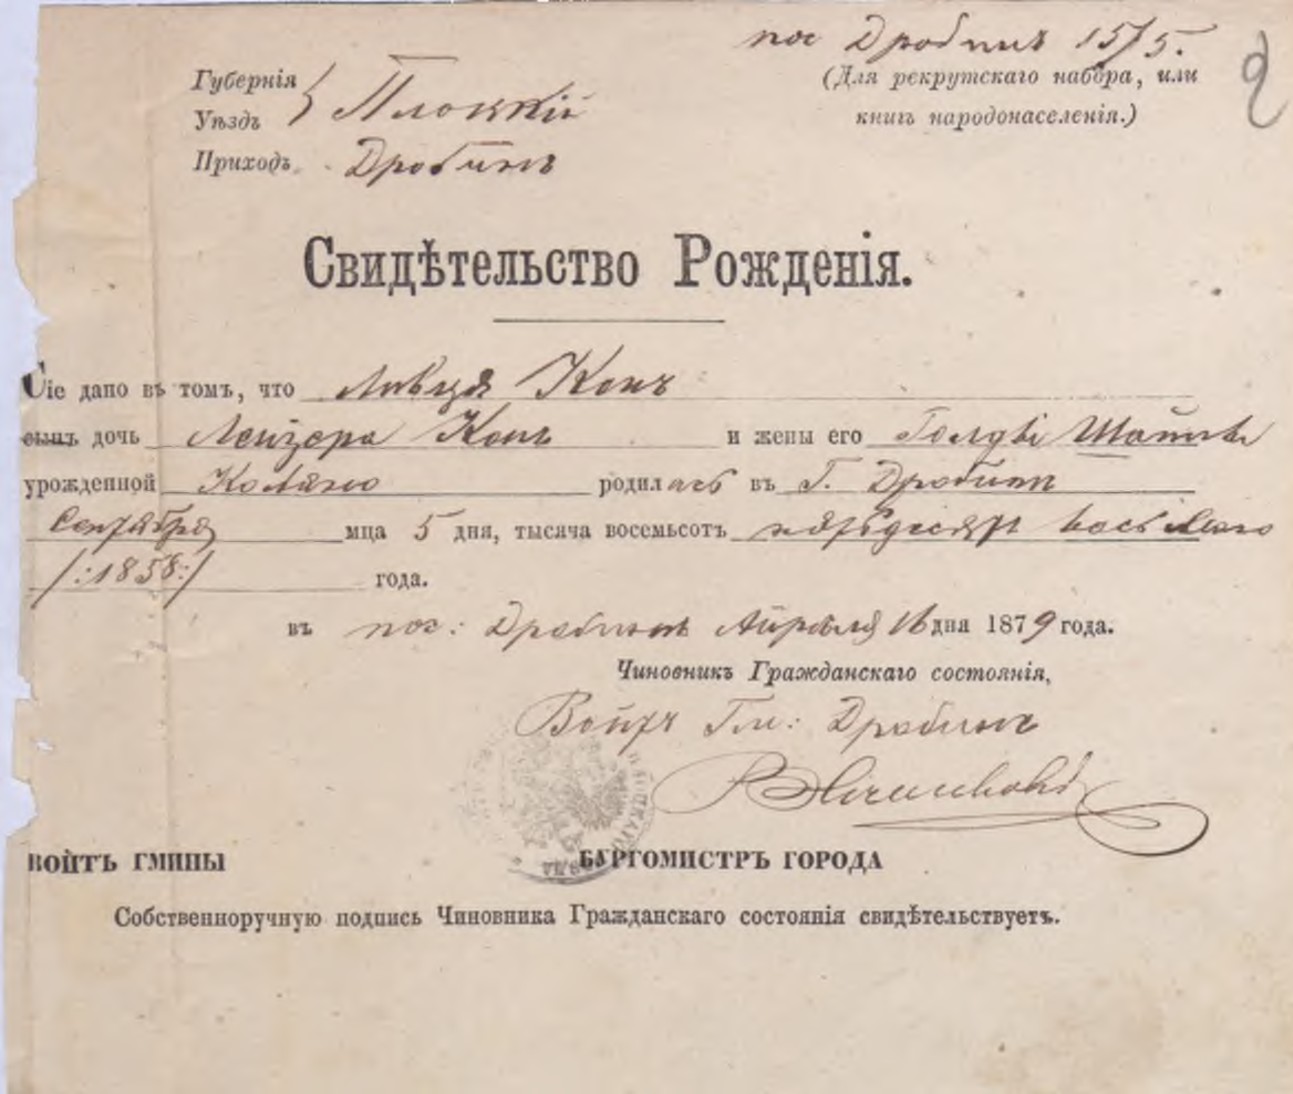 пос Дробинъ 15/5.
(Для рекрутскаго набора, или
книгъ народонаселенія.)
Губернія
Уѣздъ
Плоцкій
Приходъ Дробинъ
Свидѣтельство Рожденія.
Сіе дано въ томъ, что Ливця Конъ
сынъ дочь Лейзера Конъ и жены его Голды
урожденной родилась въ Г. Дробинѣ
Сентября мца 5 дня, тысяча восемьсотъ пятьдесятъ восьмаго
/:1858:/ года.
въ пос: Дробинѣ Апрѣля 16 дня 1879 года.
Чиновникъ Гражданскаго состоянія,
Войтъ Гм: Дробинъ
ВОЙТЪ ГМИНЫ БУРГОМИСТРЪ ГОРОДА
Собственноручную подпись Чиновника Гражданскаго состоянія свидѣтельствуетъ.